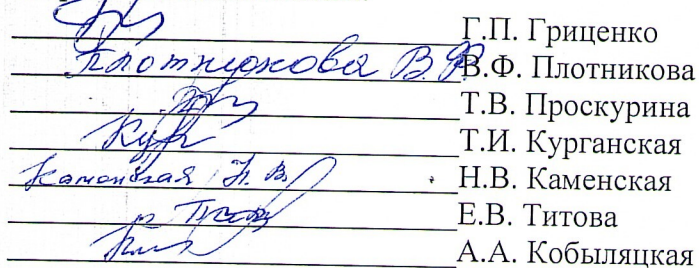 Г.П. Гриценко
Плотникова В.Ф. В.Ф. Плотникова
Т.В. Проскурина
Кур Т.И. Курганская
Каменская Н.В. Н.В. Каменская
Е.В. Титова
А.А. Кобыляцкая